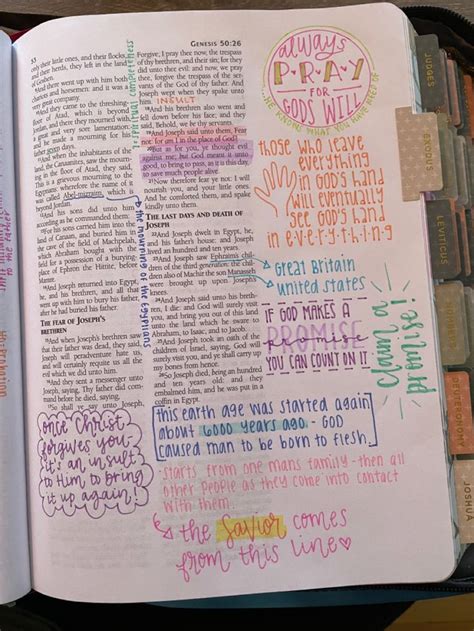 53
GENESIS 50:26
only their little ones, and their flocks,
and their herds, they left in the land
of Goshen.
And there went up with him both
chariots and horsemen: and it was a
very great company.
And they came to the threshing-
floor of Atad, which is beyond
Jordan, and there they mourned with
a great and very sore lamentation:
and he made a mourning for his
father seven days.
And when the inhabitants of the
land, the Canaanites, saw the mourning
in the floor of Atad, they said,
This is a grievous mourning to the
Egyptians: wherefore the name of it
was called Abel-mizraim, which is
beyond Jordan.
And his sons did unto him
according as he commanded them:
For his sons carried him into the
land of Canaan, and buried him in
the cave of the field of Machpelah,
which Abraham bought with the
field for a possession of a burying-
place of Ephron the Hittite, before
Mamre.
And Joseph returned into Egypt,
he, and his brethren, and all that
went up with him to bury his father,
after he had buried his father.
THE FEAR OF JOSEPH'S
BRETHREN
And when Joseph's brethren saw
that their father was dead, they said,
Joseph will peradventure hate us,
and will certainly requite us all the
evil which we did unto him.
And they sent a messenger unto
Joseph, saying, Thy father did com-
mand before he died, saying,
So shall ye say unto Joseph,
Forgive, I pray thee now, the trespass
of thy brethren, and their sin; for they
did unto thee evil: and now, we pray
thee, forgive the trespass of the ser-
vants of the God of thy father. And
Joseph wept when they spake unto
him.
INSULT
And his brethren also went and
fell down before his face; and they
said, Behold, we be thy servants.
And Joseph said unto them, Fear
not: for am I in the place of God?
But as for you, ye thought evil
against me; but God meant it unto
good, to bring to pass, as it is this day,
to save much people alive.
Now therefore fear ye not: I will
nourish you, and your little ones.
And he comforted them, and spake
kindly unto them.
THE LAST DAYS AND DEATH OF
JOSEPH
And Joseph dwelt in Egypt, he,
and his father's house: and Joseph
lived an hundred and ten years.
And Joseph saw Ephraim's chil-
dren of the third generation: the chil-
dren also of Machir the son of Manasseh
were brought up upon Joseph's
knees.
And Joseph said unto his breth-
ren, I die: and God will surely visit
you, and bring you out of this land
unto the land which he sware to
Abraham, to Isaac, and to Jacob.
And Joseph took an oath of the
children of Israel, saying, God will
surely visit you, and ye shall carry up
my bones from hence.
So Joseph died, being an hundred
and ten years old: and they
embalmed him, and he was put in a
coffin in Egypt.
spiritual completeness
the mourning of the egyptians
always
PRAY
FOR
GODS WILL
those who leave
everything
in God's hand
will eventually
see God's hand
in everything
Great Britain
United States
IF GOD MAKES A
PROMISE
promise
YOU CAN COUNT ON IT
claim a
promise!
this earth age was started again
about 6000 years ago - GOD
caused man to be born to flesh
- starts from one mans family - then all
other people as they come into contact
with them.
the savior comes
from this line
once Christ
forgives you-
it's an insult
to Him to bring
it up again!
JUDGES
EXODUS
LEVITICUS
DEUTERONOMY
JOSHUA